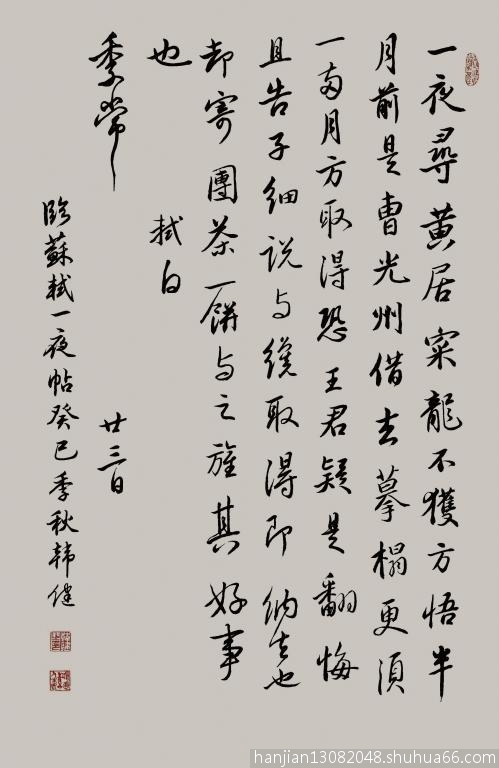 一夜尋黄居寀龍不獲方悟半
月前是曹光州借去摹榻更須
一兩月方取得恐王君疑是翻悔
且告子細説与纔取得即納去也
却寄團茶一餅与之旌其好事
也
軾白
季常
廿三日
臨蘇軾一夜帖癸巳季秋韩健
hanjian13082048.shuhua66.com